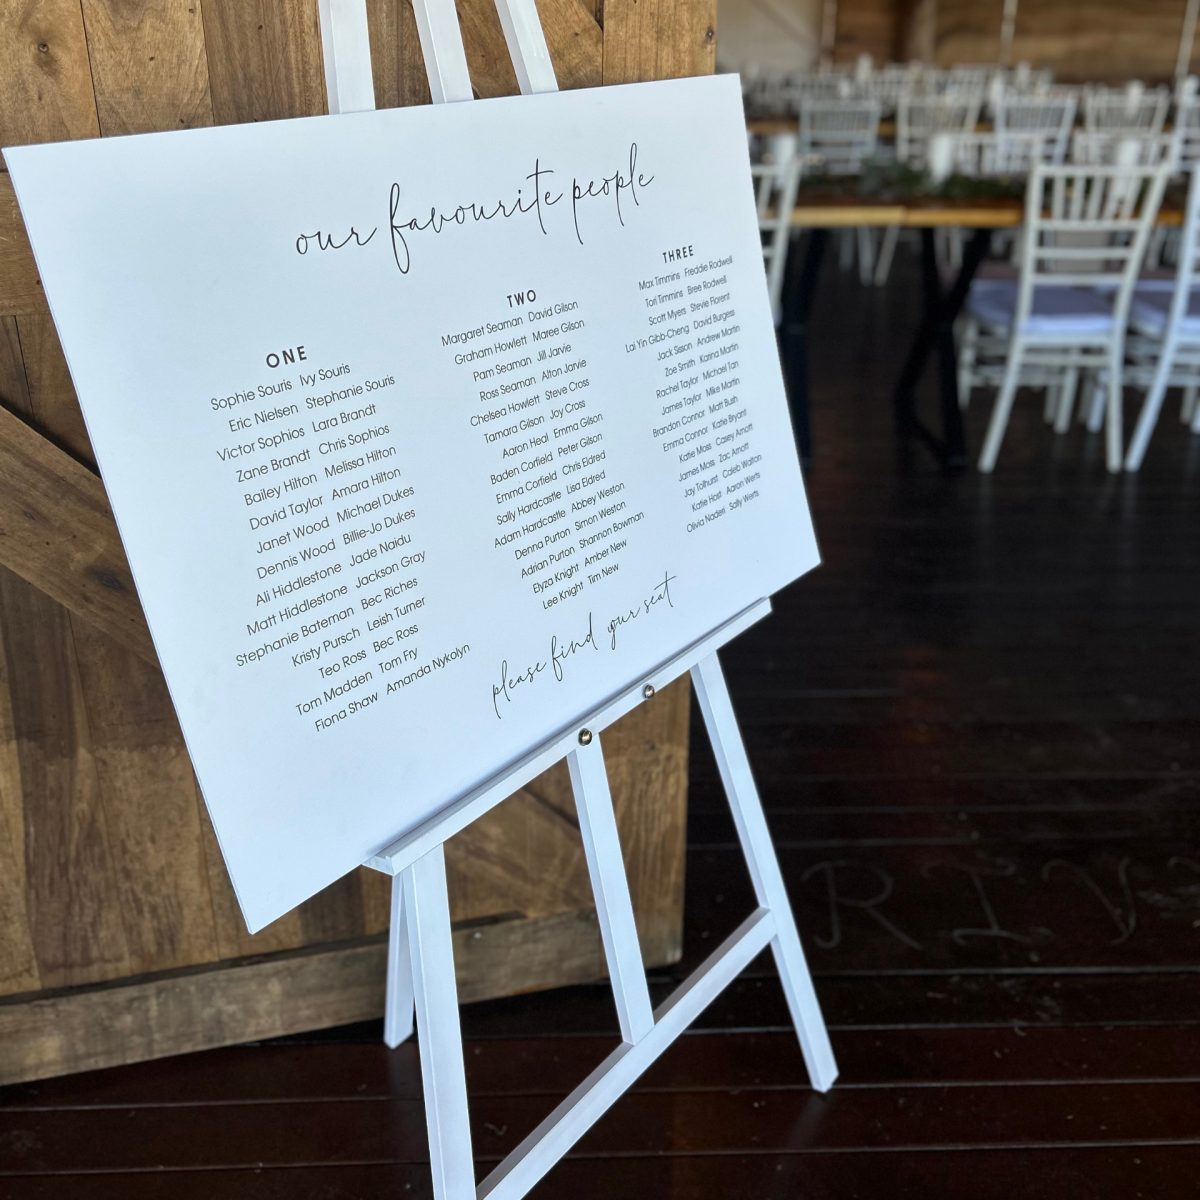 our favourite people
ONE
Sophie Souris Ivy Souris
Eric Nielsen Stephanie Souris
Victor Sophios Lara Brandt
Zane Brandt Chris Sophios
Bailey Hilton Melissa Hilton
David Taylor Amara Hilton
Janet Wood Michael Dukes
Dennis Wood Billie-Jo Dukes
Ali Hiddlestone Jade Naidu
Matt Hiddlestone Jackson Gray
Stephanie Bateman Bec Riches
Kristy Pursch Leish Turner
Teo Ross Bec Ross
Tom Madden Tom Fry
Fiona Shaw Amanda Nykolyn
TWO
Margaret Seaman David Gilson
Graham Howlett Maree Gilson
Pam Seaman Jill Jarvie
Ross Seaman Alton Jarvie
Chelsea Howlett Steve Cross
Tamara Gilson Joy Cross
Aaron Heal Emma Gilson
Baden Corfield Peter Gilson
Emma Corfield Chris Eldred
Sally Hardcastle Lisa Eldred
Adam Hardcastle Abbey Weston
Denna Purton Simon Weston
Adrian Purton Shannon Bowman
Elyza Knight Amber New
Lee Knight Tim New
THREE
Max Timmins Freddie Rodwell
Tori Timmins Bree Rodwell
Scott Myers Stevie Florent
Lai Yin Gibb-Cheng David Burgess
Jack Sisson Andrew Martin
Zoe Smith Karina Martin
Rachel Taylor Michael Tan
James Taylor Mike Martin
Brandon Connor Matt Bush
Emma Connor Katie Bryant
Katie Moss Casey Arnott
James Moss Zac Arnott
Jay Tolhurst Caleb Walton
Katie Host Aaron Werts
Olivia Naderi Sally Werts
please find your seat
RIV